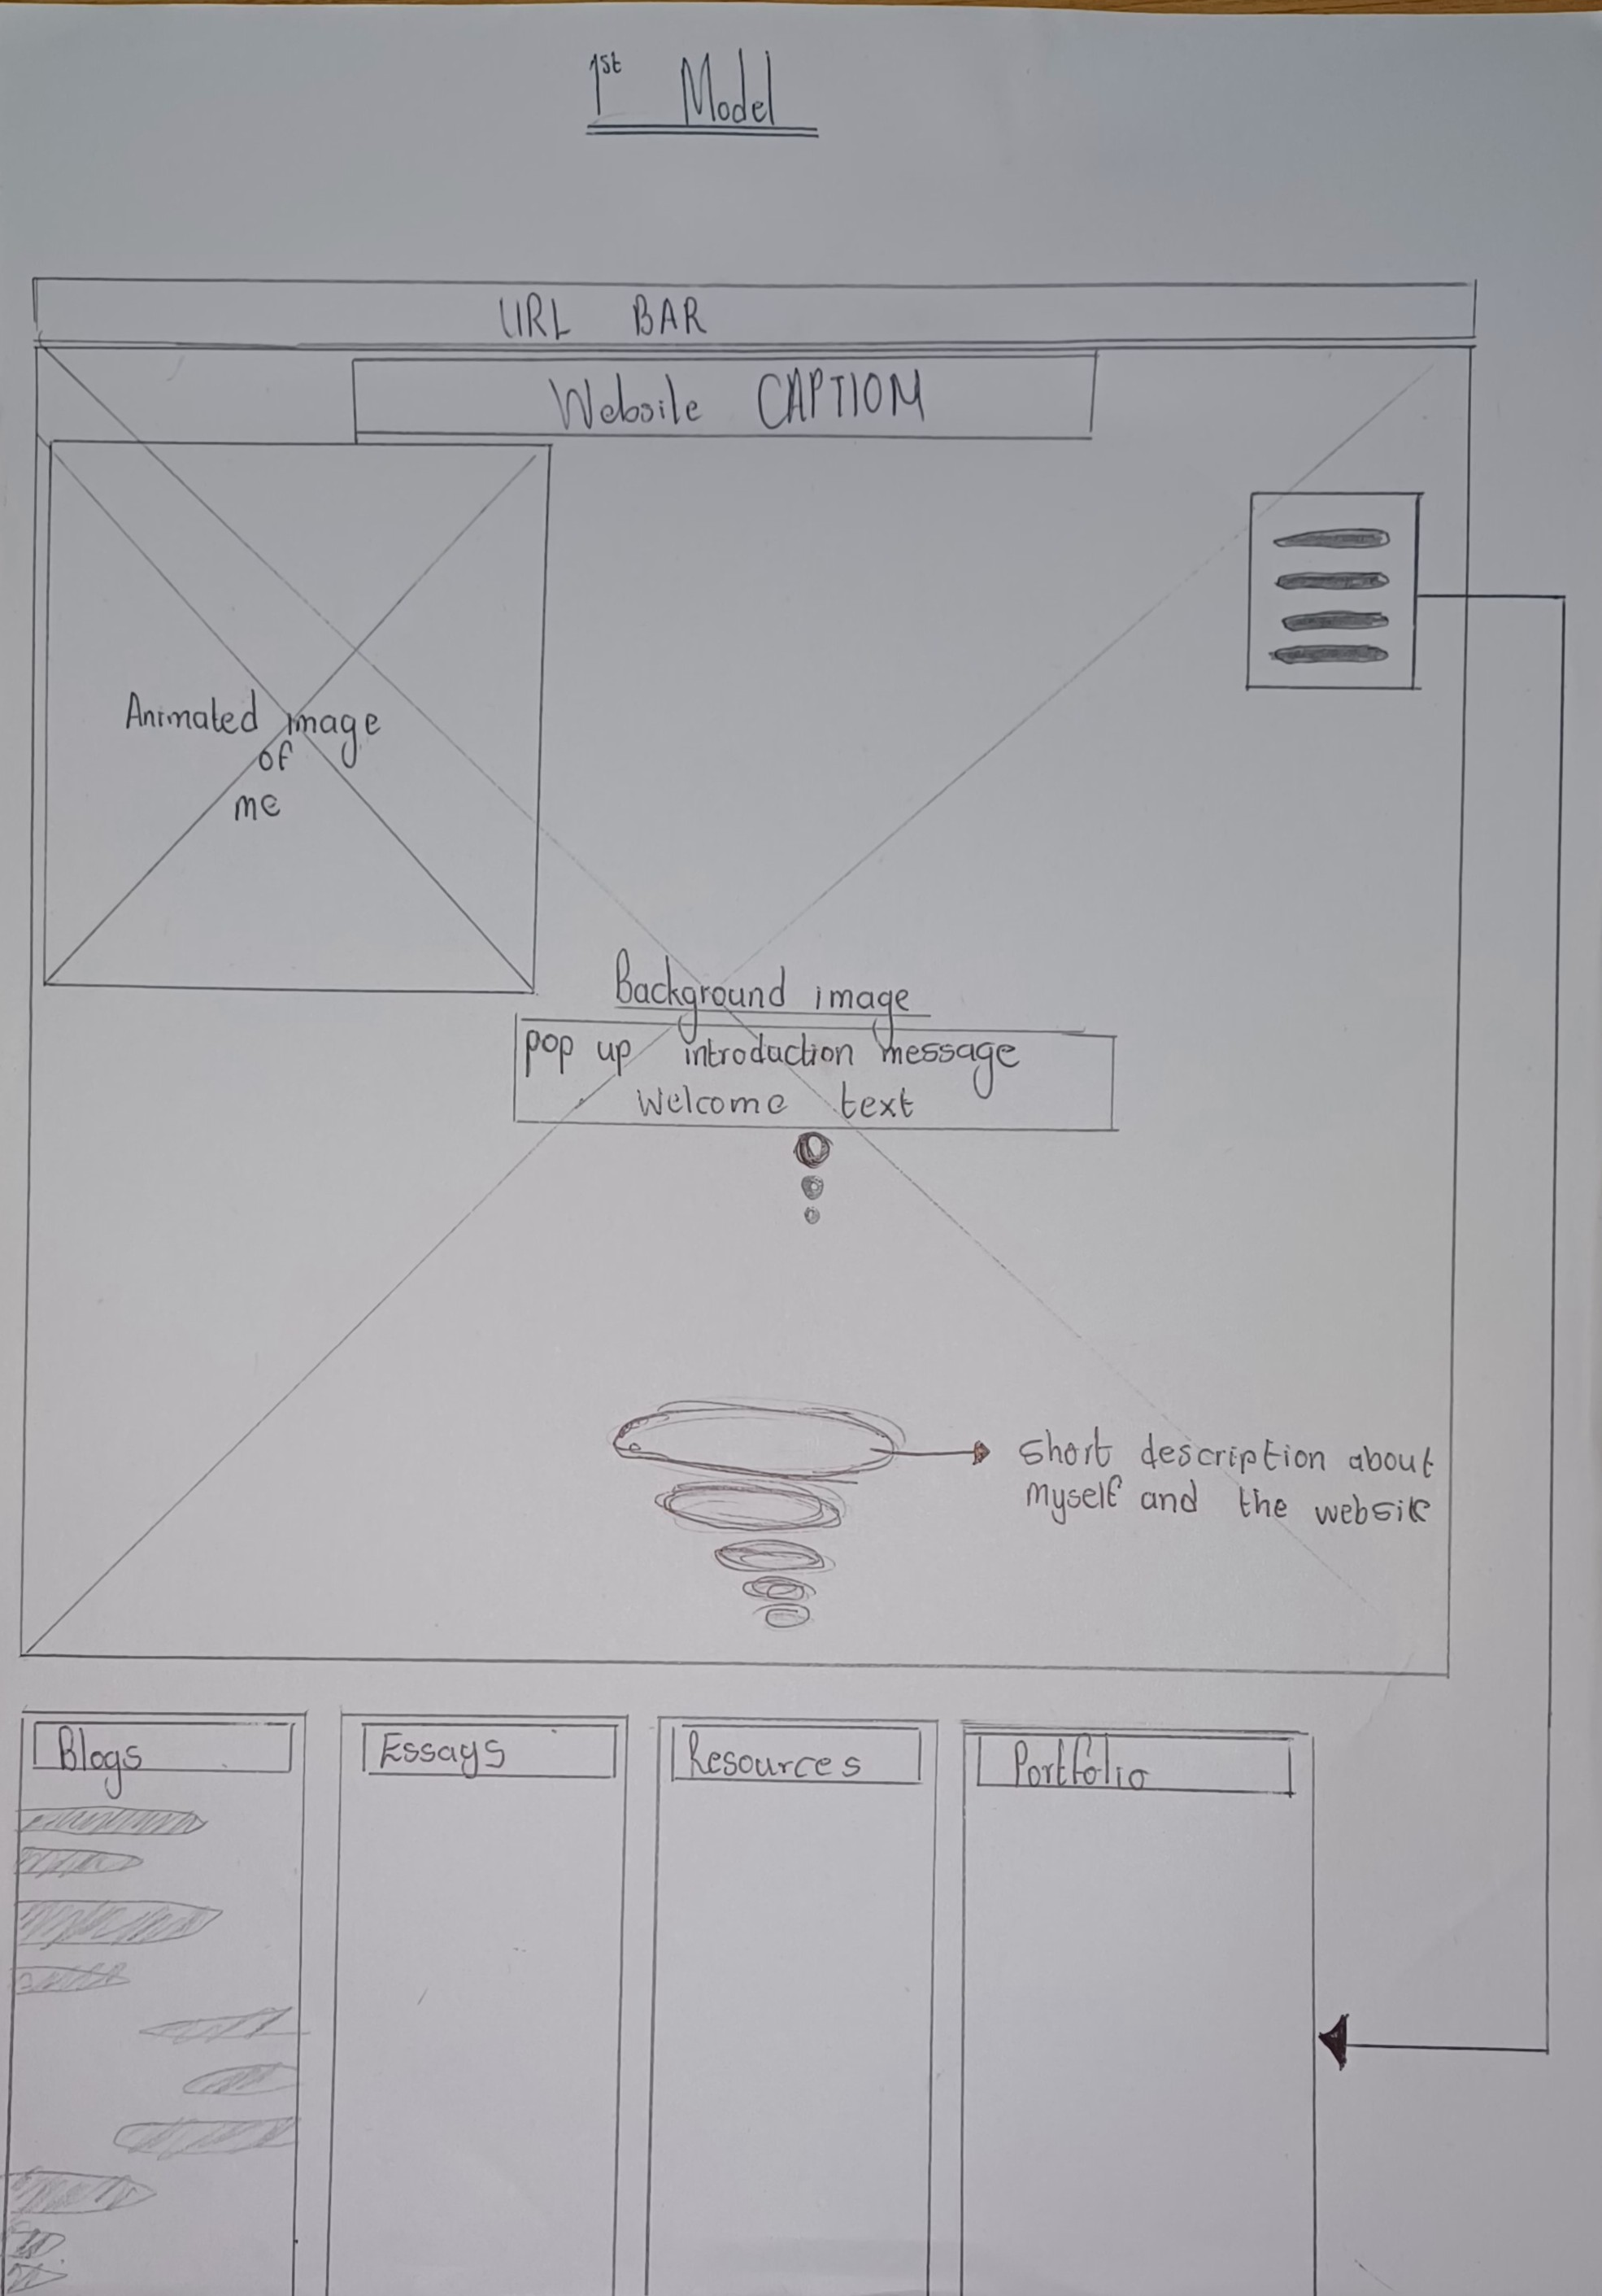 1st Model
URL BAR
Website CAPTION
Animated image
of
me
Background image
pop up introduction message
Welcome text
short description about
myself and the website
Blogs
Essays
Resources
Portfolio